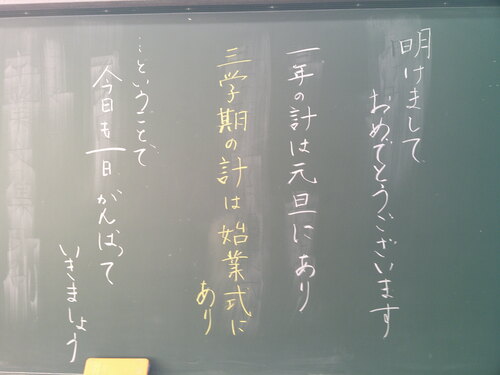 明けまして
おめでとうございます
一年の計は元旦にあり
三学期の計は始業式に
あり
…ということで、
今日も一日がんばって
いきましょう